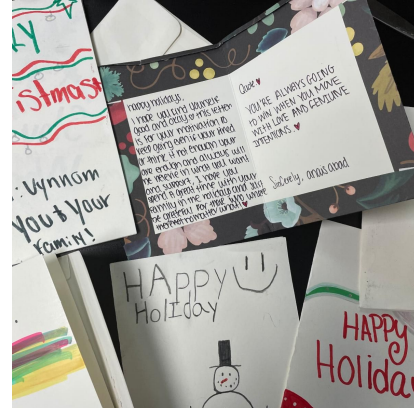 LY
istmas
: Vynnam
You & Your
Family!
happy holidays,
I hope you find yourself
good and okay. this letter
is for your motivation to
keep going even if your tired
or think it not enough your
are enough and always will
be deserve in what you want
and support. I hope you
spend a great time with your
family in the holidays and just
be grateful for
no matter what
Quote
YOU'RE ALWAYS GOING
TO WIN WHEN YOU MOVE
WITH LOVE AND FEMININE
INTENTIONS.
Sincerely,
HAPPY
Holiday
HAPPY
Holida